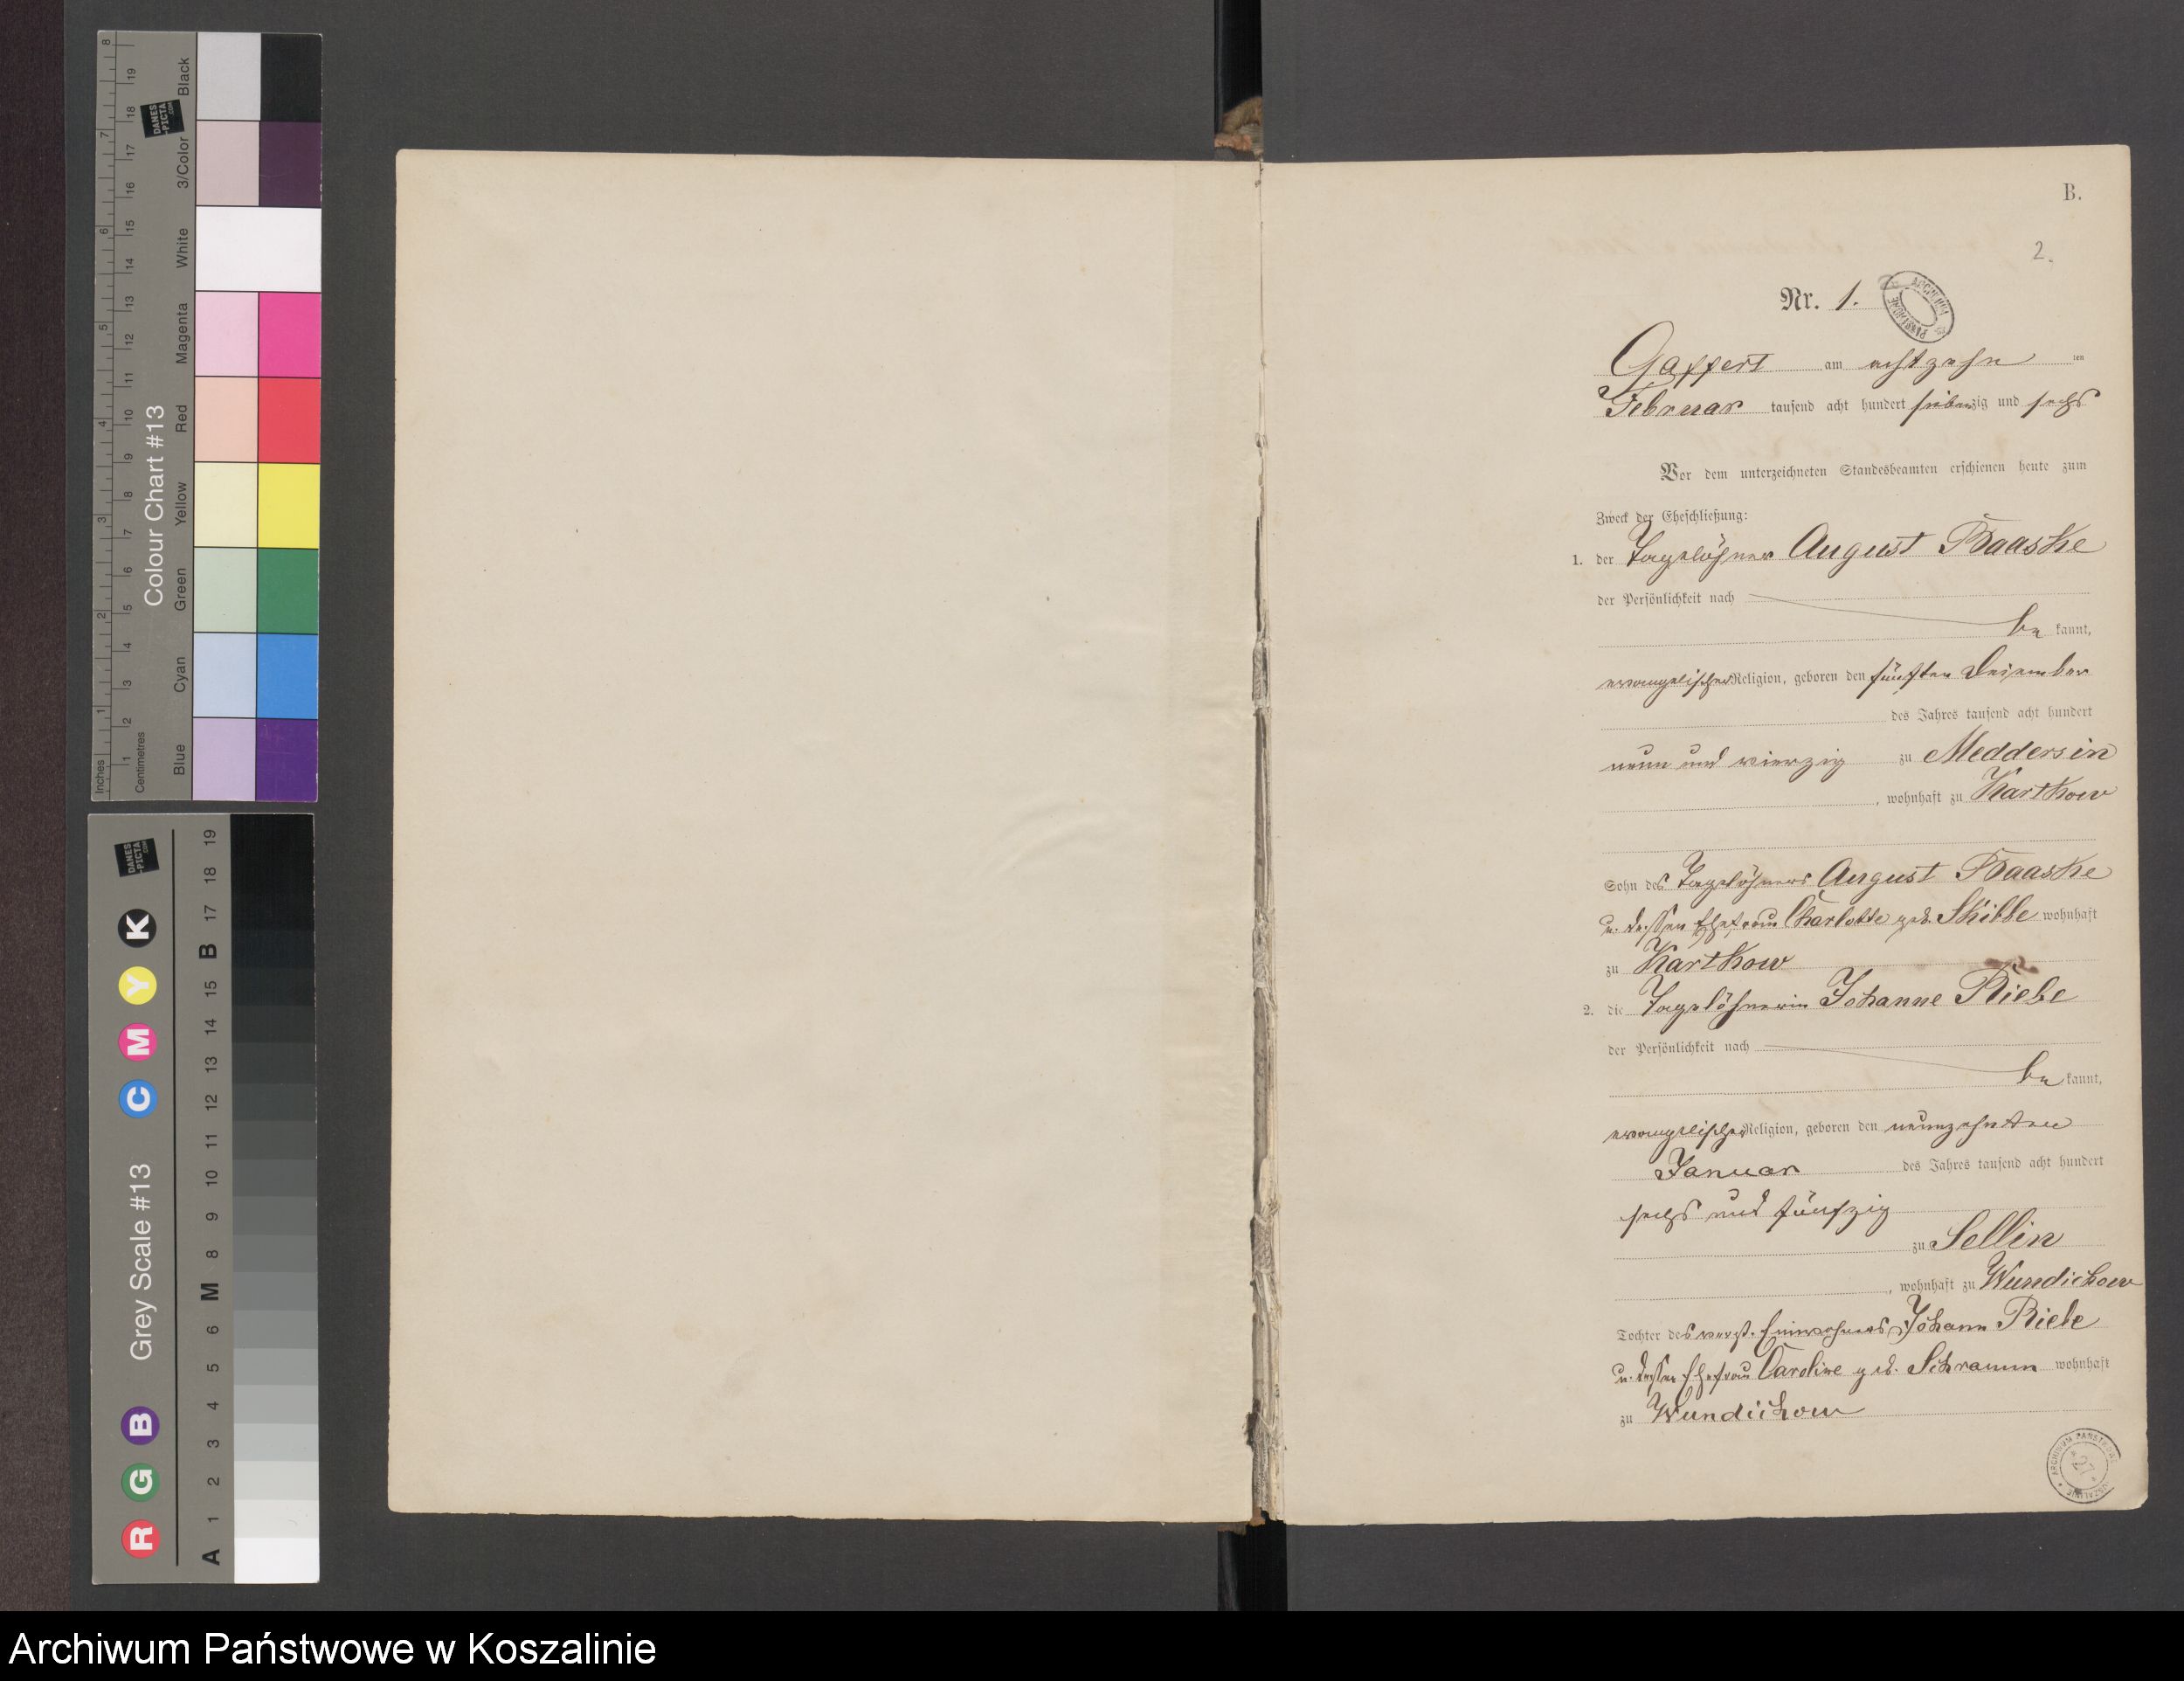 B.
2.
Nr. 1.
Gaffert am achtzehn ten
Februar tausend acht hundert siebenzig und sechs
Vor dem unterzeichneten Standesbeamten erschienen heute zum
Zweck der Eheschließung:
1. der Tagelöhner August Baaske
der Persönlichkeit nach
be kannt,
evangelischer Religion, geboren den fünften Dezember
des Jahres tausend acht hundert
neun und vierzig zu Meddersin
, wohnhaft zu Kartkow
Sohn des Tagelöhners August Baaske
u. dessen Ehefrau Charlotte geb. Skibbe wohnhaft
zu Kartkow
2. die Tagelöhnerin Johanne Riebe
der Persönlichkeit nach
be kannt,
evangelischer Religion, geboren den neunzehnten
Januar des Jahres tausend acht hundert
sechs und fünfzig
zu Sellin
, wohnhaft zu Wundichow
Tochter des verst. Einwohners Johann Riebe
u. dessen Ehefrau Caroline geb. Schramm wohnhaft
zu Wundichow
ARCHIWUM PAŃSTWOWE
27
KOSZALINIE
Inches
1 2 3 4 5 6 7 8
Centimetres
1 2 3 4 5 6 7 8 9 10 11 12 13 14 15 16 17 18 19
Colour Chart #13
Blue Cyan Green Yellow Red Magenta White 3/Color Black
DANES
-PICTA
.COM
Grey Scale #13
R G B C M Y K
A 1 2 3 4 5 6 M 8 9 10 11 12 13 14 15 B 17 18 19
DANES
-PICTA
.COM
Archiwum Państwowe w Koszalinie